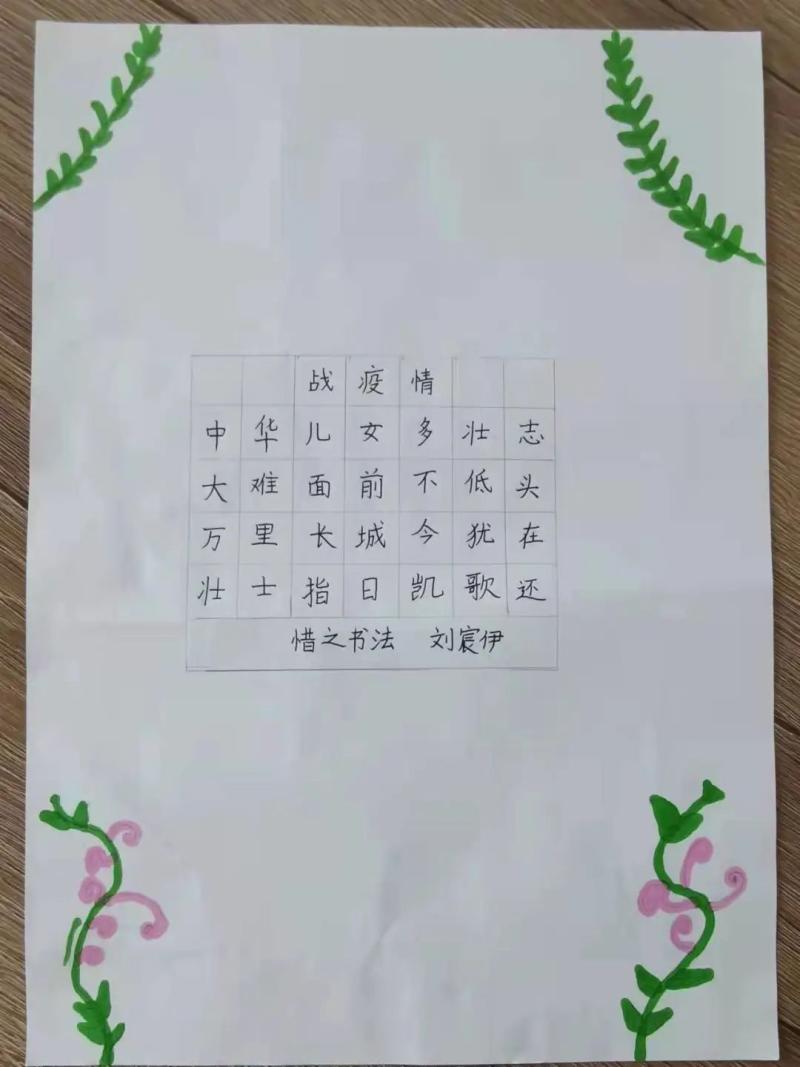 战疫情
中华儿女多壮志
大难面前不低头
万里长城今犹在
壮士指日凯歌还
惜之书法 刘宸伊